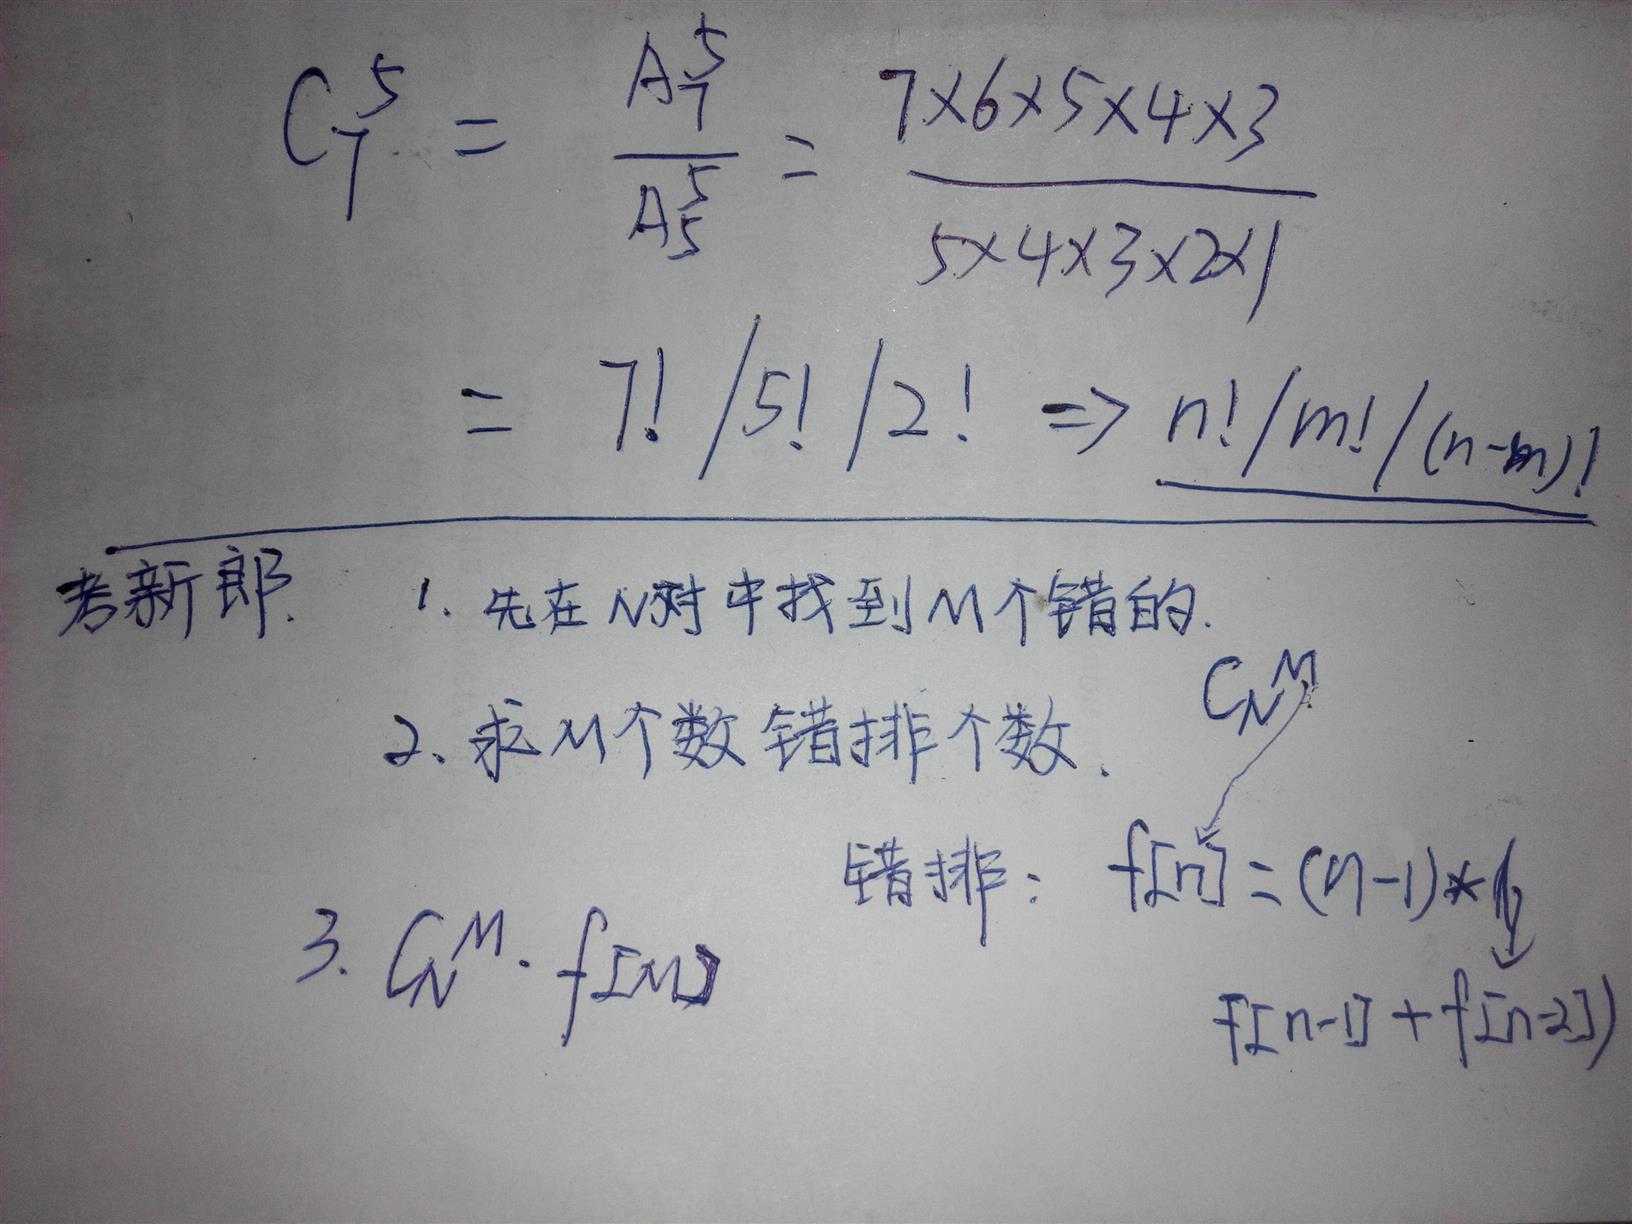 C₇⁵ = A₇⁵ / A₅⁵ = 7×6×5×4×3 / 5×4×3×2×1
= 7! /5! /2! => n!/m!/(n-m)!
考新郎. 1. 先在N对中找到M个错的.
C_N^M
2、求M个数错排个数.
错排: f[n] = (n-1)*(
f[n-1] + f[n-2])
3. C_N^M · f[M]